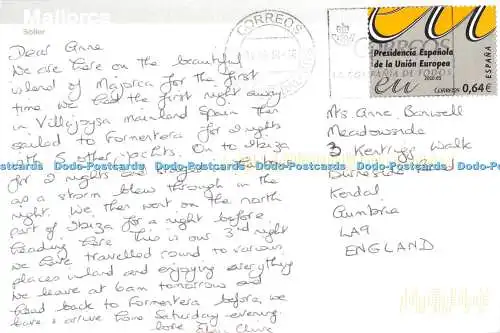 Mallorca
Sóller
Dear Anne
We are here on the beautiful
island of Majorca for the first
time. We had the first night away
in Villajoysa mainland Spain then
sailed to Formentera for 2 nights
with other yachts. On to Ibiza
for 2 nights
as a storm blew through in the
night. We then went on the north
part of Ibiza for a night before
heading here. This is our 3rd night
we have travelled round to various
places inland and enjoying everything
we leave at 6am tomorrow and
head back to Formentera before we
leave & arrive home Saturday evening.
love
CORREOS
CORREOS
LA COMPAÑÍA DE TODOS
eu
Presidencia Española
de la Unión Europea
2010.ES
eu
CORREOS 0,64€
ESPAÑA
Mrs. Anne Banwell
Meadowside
3 Kentrigg Walk
Burneside Road
Kendal
Cumbria
LA9
ENGLAND
Dodo-Postcards Dodo-Postcards Dodo-Postcards Dodo-Postcards Dodo-Postcards Dodo-Postcards